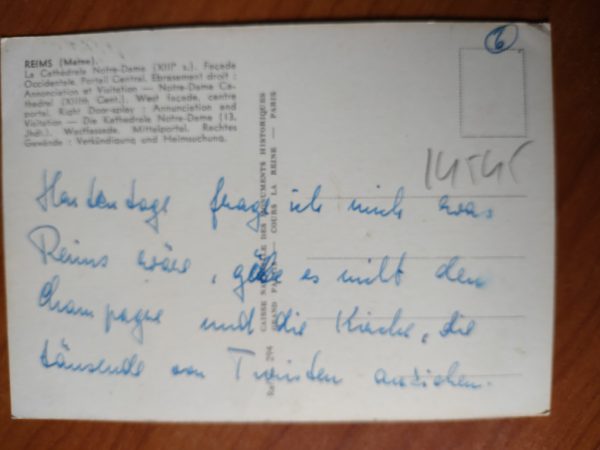 6
REIMS (Marne).
La Cathédrale Notre-Dame (XIIIe s.). Façade
Occidentale. Portail Central. Ebrasement droit :
Annonciation et Visitation — Notre-Dame Ca-
thedral (XIIIth Cent.). West façade, centre
portal. Right Door-splay : Annunciation and
Visitation — Die Kathedrale Notre-Dame (13.
Jhdt.). Westfassade. Mittelportal. Rechtes
Gewände : Verkündigung und Heimsuchung.
CAISSE NATIONALE DES MONUMENTS HISTORIQUES
GRAND PALAIS — COURS LA REINE — PARIS
294
Heutentage frage ich mich was
Reims wäre, gäbe es nicht den
Champagne und die Kirche, die
tausende von Touristen anziehen.